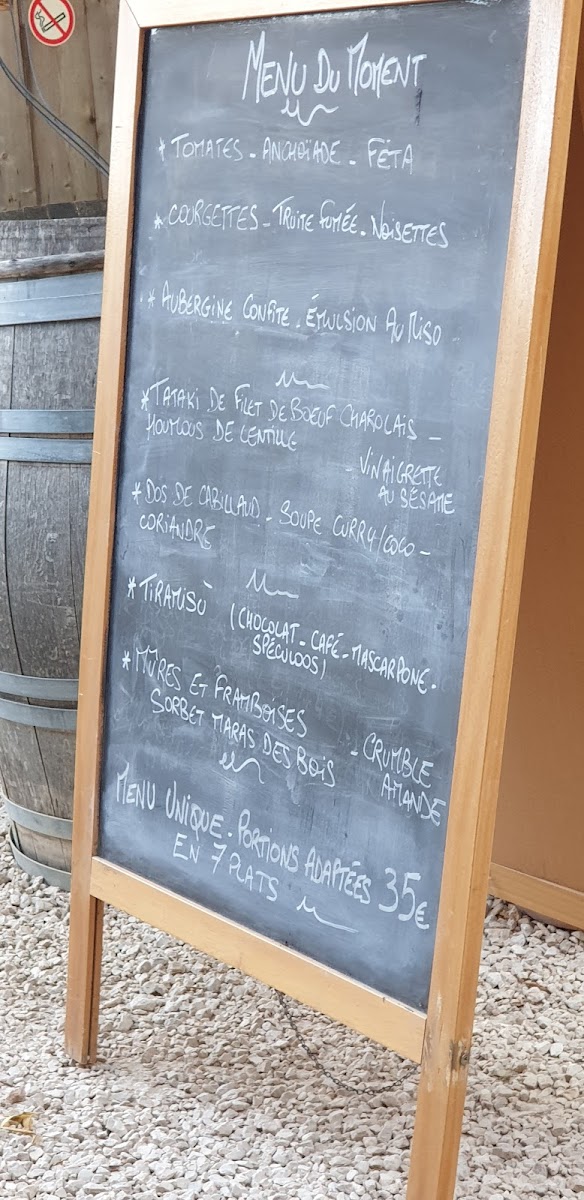 MENU DU MOMENT
* TOMATES - ANCHOÏADE - FÉTA
* COURGETTES - TRUITE FUMÉE - NOISETTES
* AUBERGINE CONFITE - ÉMULSION AU MISO
* TATAKI DE FILET DE BOEUF CHAROLAIS -
HOUMOUS DE LENTILLE
- VINAIGRETTE
AU SÉSAME
* DOS DE CABILLAUD - SOUPE CURRY/COCO -
CORIANDRE
* TIRAMISÙ (CHOCOLAT - CAFÉ - MASCARPONE -
SPÉCULOOS)
* MÛRES ET FRAMBOISES
SORBET MARAS DES BOIS
- CRUMBLE
AMANDE
MENU UNIQUE - PORTIONS ADAPTÉES 35€
EN 7 PLATS